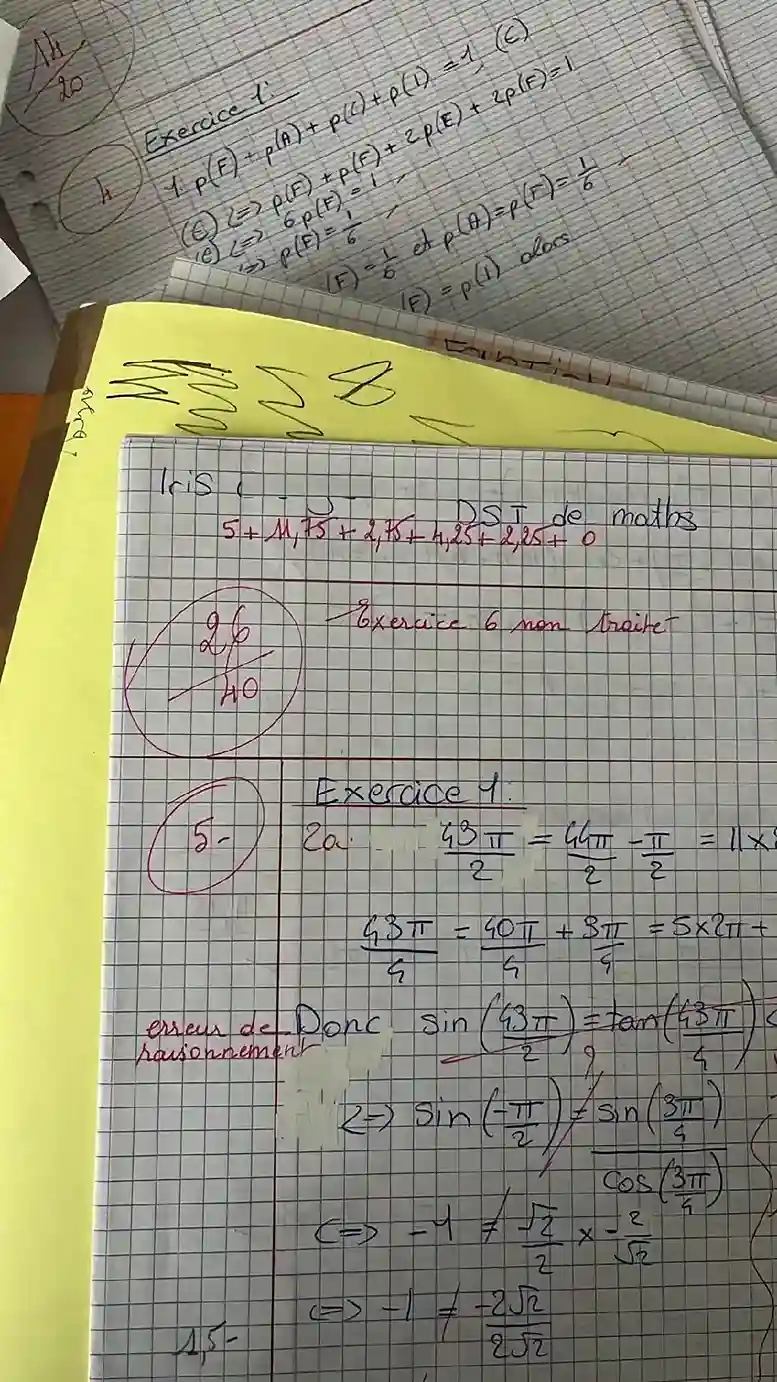 14/20
Exercice 1:
4
1. p(F) + p(A) + p(C) + p(I) = 1 (E)
(E) <=> p(F) + p(F) + 2p(F) + 2p(F) = 1
(E) <=> 6p(F) = 1
<=> p(F) = 1/6
(F) = 1/6 et p(A) = p(F) = 1/6
(F) = p(I) alors
Iris
DST de maths
5 + 11,75 + 2,75 + 4,25 + 2,25 + 0
26/40
Exercice 6 non traité
Exercice 1:
5-
2a. 43π/2 = 44π/2 - π/2 = 11×
43π/4 = 40π/4 + 3π/4 = 5×2π +
erreur de raisonnement
Donc sin(43π/2) = tan(43π/4)
?
<=> sin(-π/2) = sin(3π/4)/cos(3π/4)
<=> -1 ≠ √2/2 × -2/√2
<=> -1 ≠ -2√2/2√2
1,5-